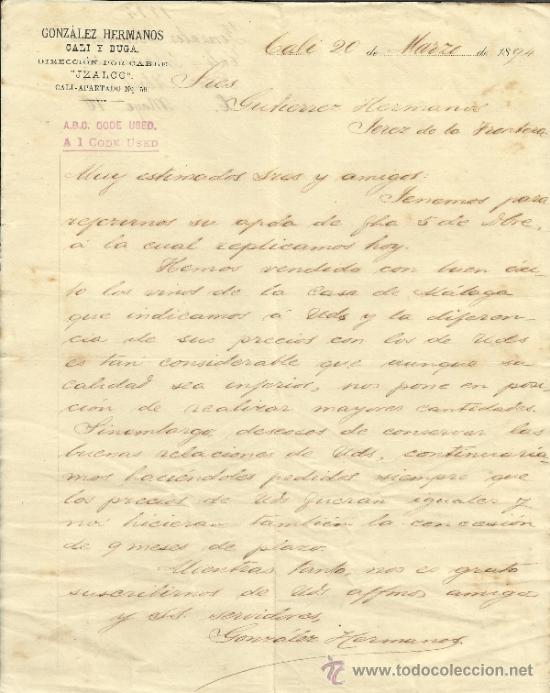 GONZÁLEZ HERMANOS
CALI Y BUGA.
DIRECCIÓN POR CABLE
"JZALCO".
CALI-APARTADO No. 56
A.B.C. CODE USED.
A 1 CODE USED
Cali 20 de Marzo de 1894
Sres
Gutierrez Hermanos
Jerez de la Frontera
Muy estimados Sres y amigos:
Tenemos para
referirnos su apda de fha 5 de Dbre,
á la cual replicamos hoy.
Hemos vendido con buen éxi-
to los vinos de la casa de Málaga
que indicamos á Uds y la diferen-
cia de sus precios con los de Uds
es tan considerable que aunque su
calidad sea inferior, nos pone en posi-
ción de realizar mayores cantidades.
Sinembargo, deseosos de conservar las
buenas relaciones de Uds, continuaria-
mos haciéndoles pedidos siempre que
los precios de Uds fueran iguales y
nos hicieran también la concesión
de 9 meses de plazo.
Mientras tanto, nos es grato
suscribirnos de Uds affmos amigos
y S.S. servidores,
González Hermanos.
todocoleccion
www.todocoleccion.net